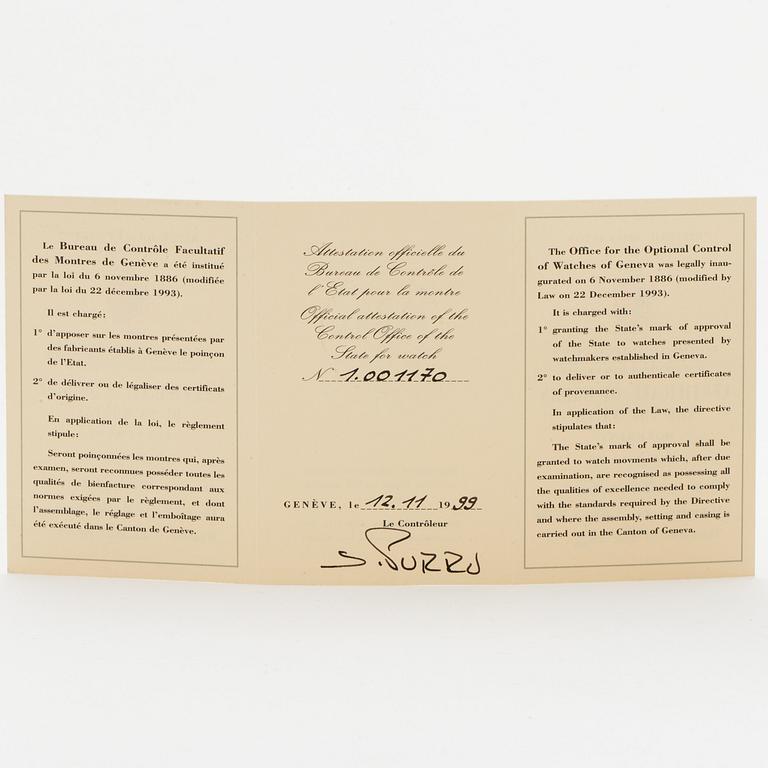 Le Bureau de Contrôle Facultatif
des Montres de Genève a été institué
par la loi du 6 novembre 1886 (modifiée
par la loi du 22 décembre 1993).
Il est chargé:
1° d'apposer sur les montres présentées par
des fabricants établis à Genève le poinçon
de l'Etat.
2° de délivrer ou de légaliser des certificats
d'origine.
En application de la loi, le règlement
stipule:
Seront poinçonnées les montres qui, après
examen, seront reconnues posséder toutes les
qualités de bienfacture correspondant aux
normes exigées par le règlement, et dont
l'assemblage, le réglage et l'emboîtage aura
été exécuté dans le Canton de Genève.
Attestation officielle du
Bureau de Contrôle de
l'Etat pour la montre
Official attestation of the
Control Office of the
State for watch
N° 1.001170
GENÈVE, le 12.11 1999
Le Contrôleur
The Office for the Optional Control
of Watches of Geneva was legally inau-
gurated on 6 November 1886 (modified by
Law on 22 December 1993).
It is charged with:
1° granting the State's mark of approval
of the State to watches presented by
watchmakers established in Geneva.
2° to deliver or to authenticale certificates
of provenance.
In application of the Law, the directive
stipulates that:
The State's mark of approval shall be
granted to watch movments which, after due
examination, are recognised as possessing all
the qualities of excellence needed to comply
with the standards required by the Directive
and where the assembly, setting and casing is
carried out in the Canton of Geneva.